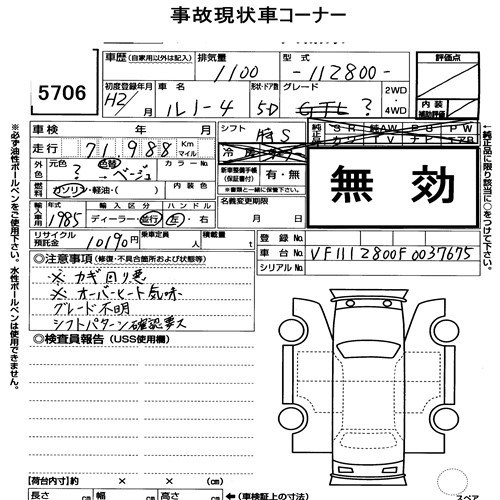 事故現状車コーナー
5706
車歴 (自家用以外は記入)
排気量
型式
評価点
1100
-112800-
初度登録年月
車名
形状・ドア数
グレード
2WD
・
4WD
内装
補助評価
H2/
ルノー4
5D
GTL ?
車検 年 月
シフト
走行 71,988 Km マイル
外色 元色 色替 カラーNo.
→ ベージュ
新車整備手帳(保証書付) 有・無
※書類と一緒に保管して下さい。
無効
燃料 ガソリン・軽油・( ) 内装色
輸入車用 年式 輸入区分 ハンドル
1985 ディーラー・並行 左・右
名義変更期限
月 日
リサイクル預託金 10190 円 乗車定員 人 積載量 t
登録No.
車台No. VF1112800F0037675
シリアルNo.
◎注意事項 (修復・不具合箇所および状態等)
※ カギ回り悪
※ オーバーヒート気味
グレード不明
シフトパターン確認要ス
◎検査員報告 (USS使用欄)
【荷台内寸】約 × × cm
長さ cm 幅 cm 高さ cm ←(車検証上の寸法)
スペア
※必ず油性ボールペンをご使用下さい。水性ボールペンは使用できません。
←純正品に限り該当に○をつけて下さい。